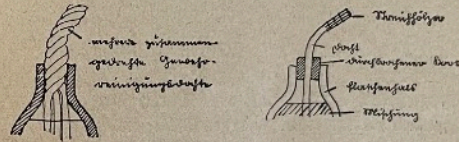 mehrere zusammen-
gedrehte Gewehr-
reinigungsdochte
Streichhölzer
Docht
Kork
Flaschenhals
Mischung